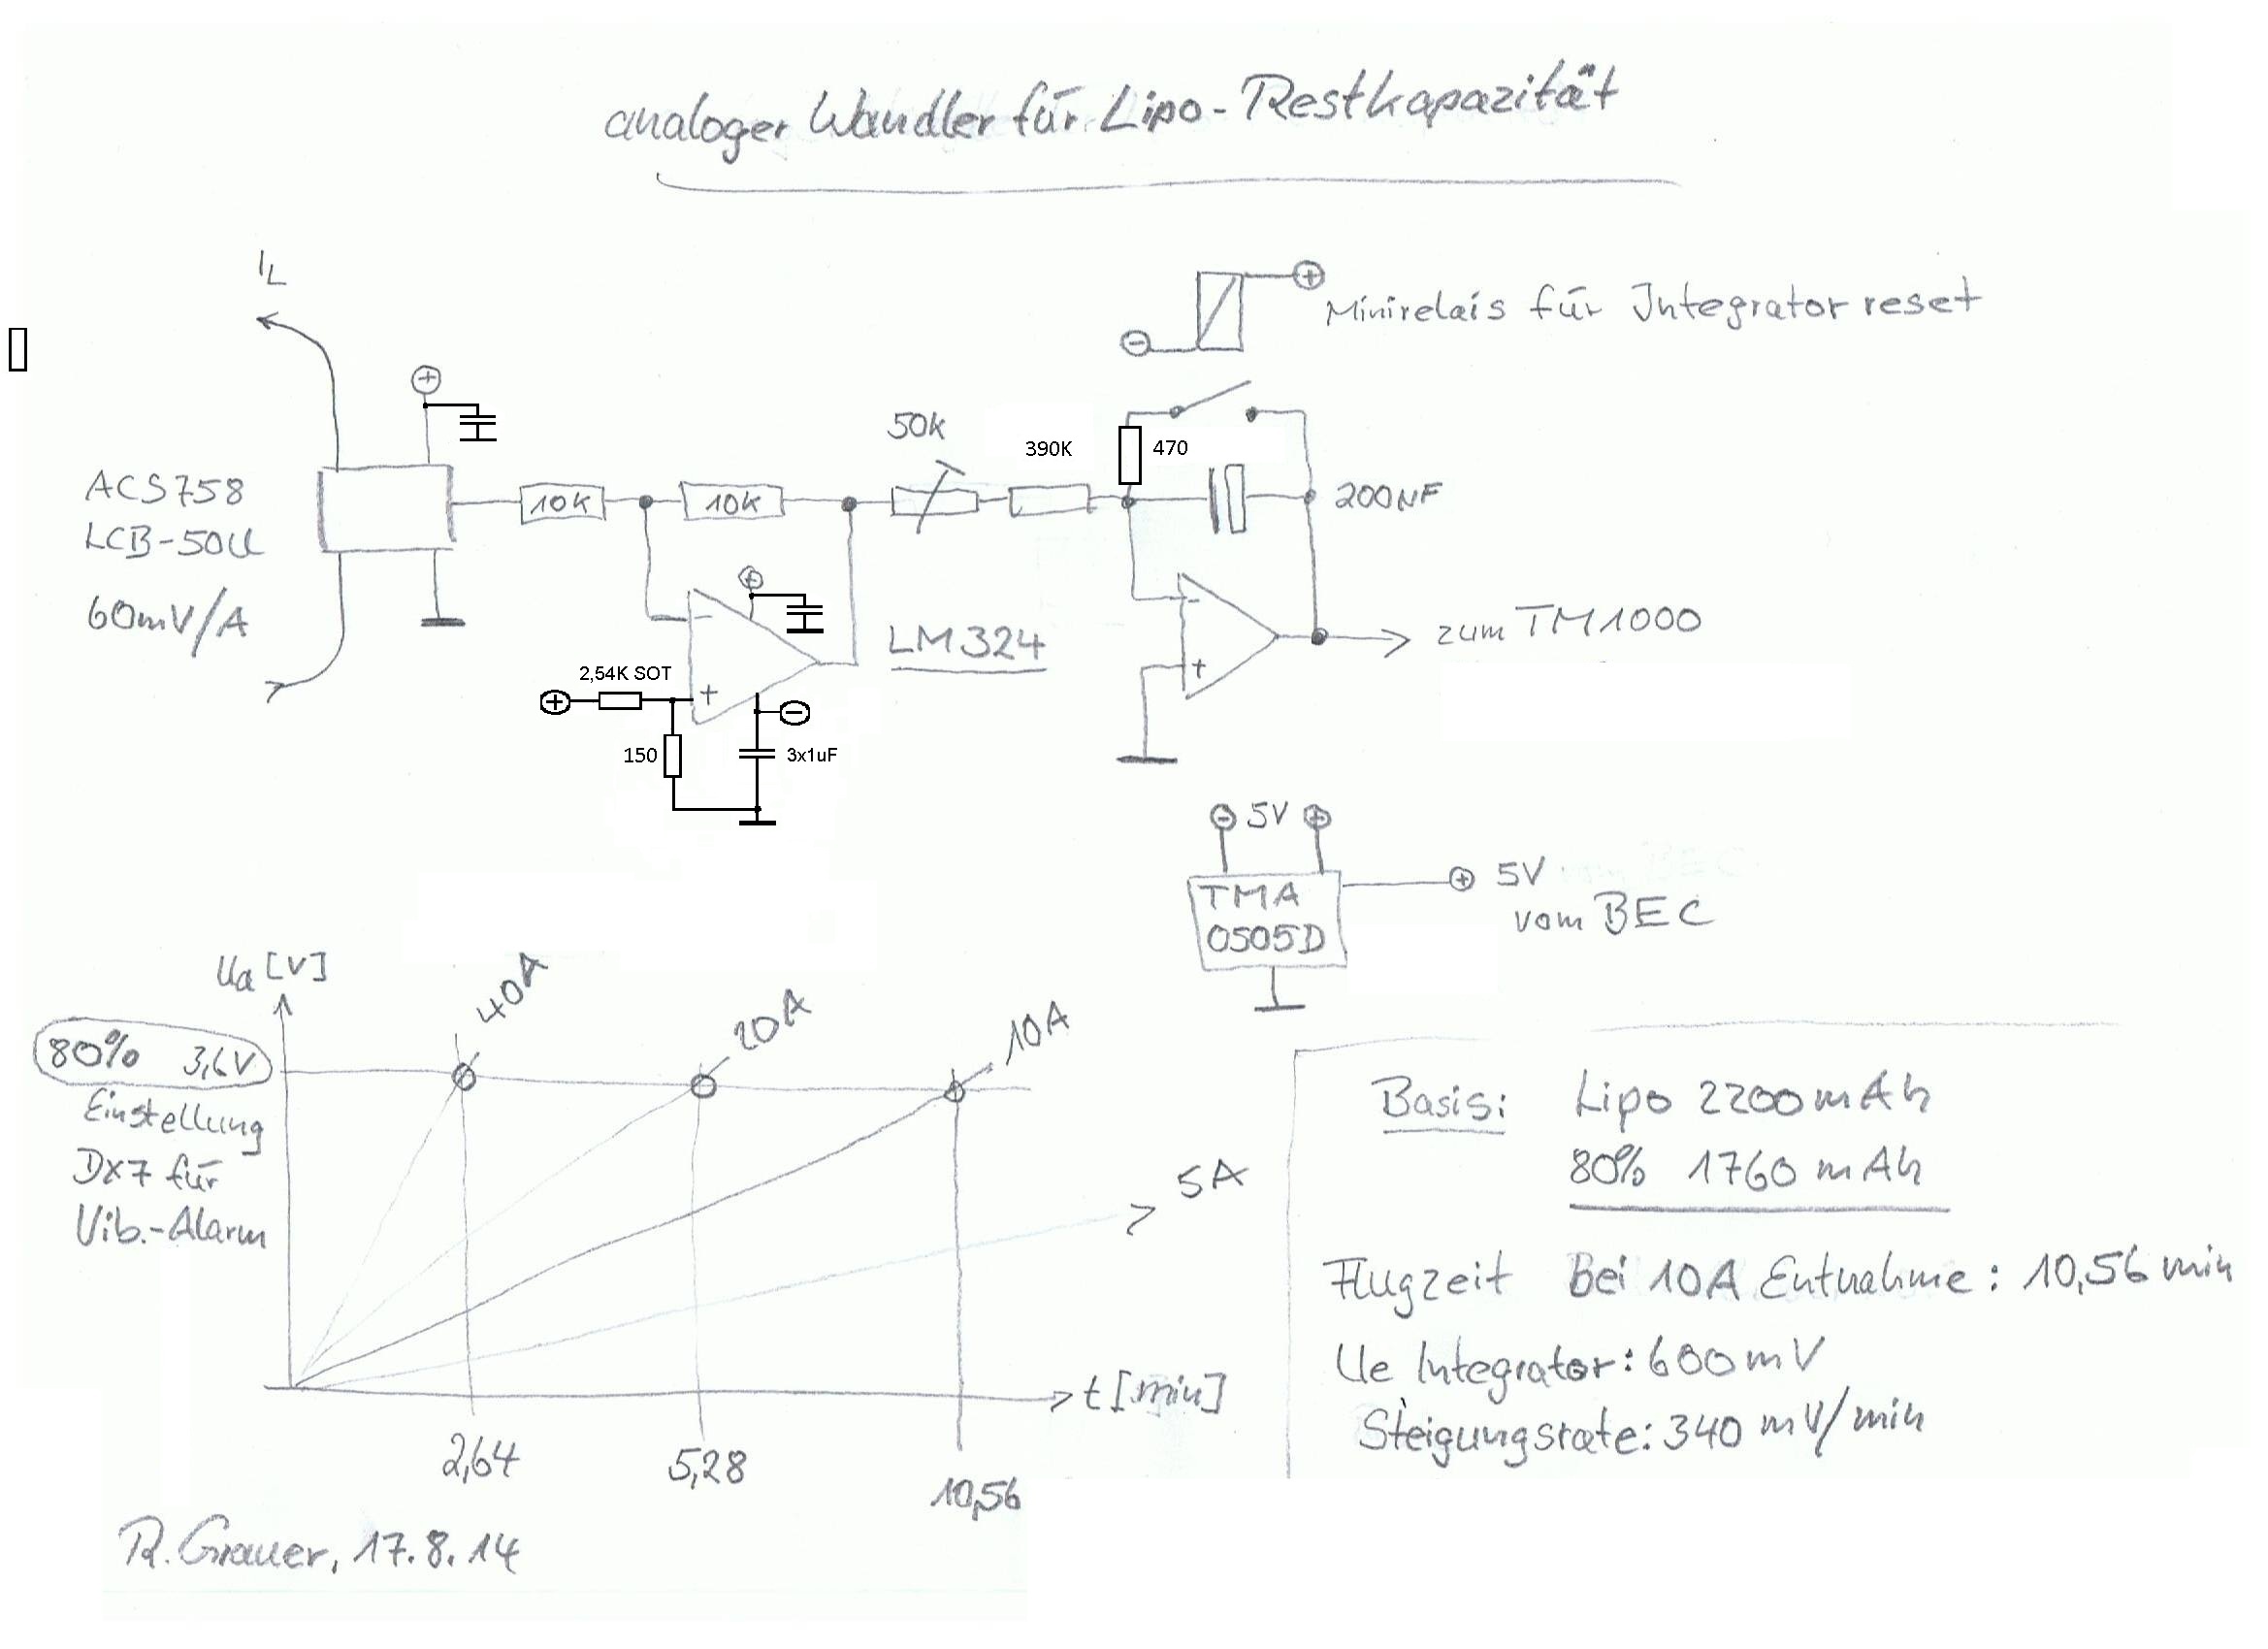 analoger Wandler für Lipo-Restkapazität
IL
Minirelais für Integrator reset
ACS758
LCB-50U
60mV/A
10K
10K
50k
390K
470
200nF
LM324
zum TM1000
2,54K SOT
150
3x1uF
5V
TMA
0505D
5V
vom BEC
Ua [V]
40A
20A
10A
5A
80% 3,6V
Einstellung
DX7 für
Vib.-Alarm
t [min]
2,64
5,28
10,56
Basis: Lipo 2200 mAh
80% 1760 mAh
Flugzeit Bei 10A Entnahme: 10,56 min
Ue Integrator: 600 mV
Steigungsrate: 340 mV/min
R. Grauer, 17.8.14